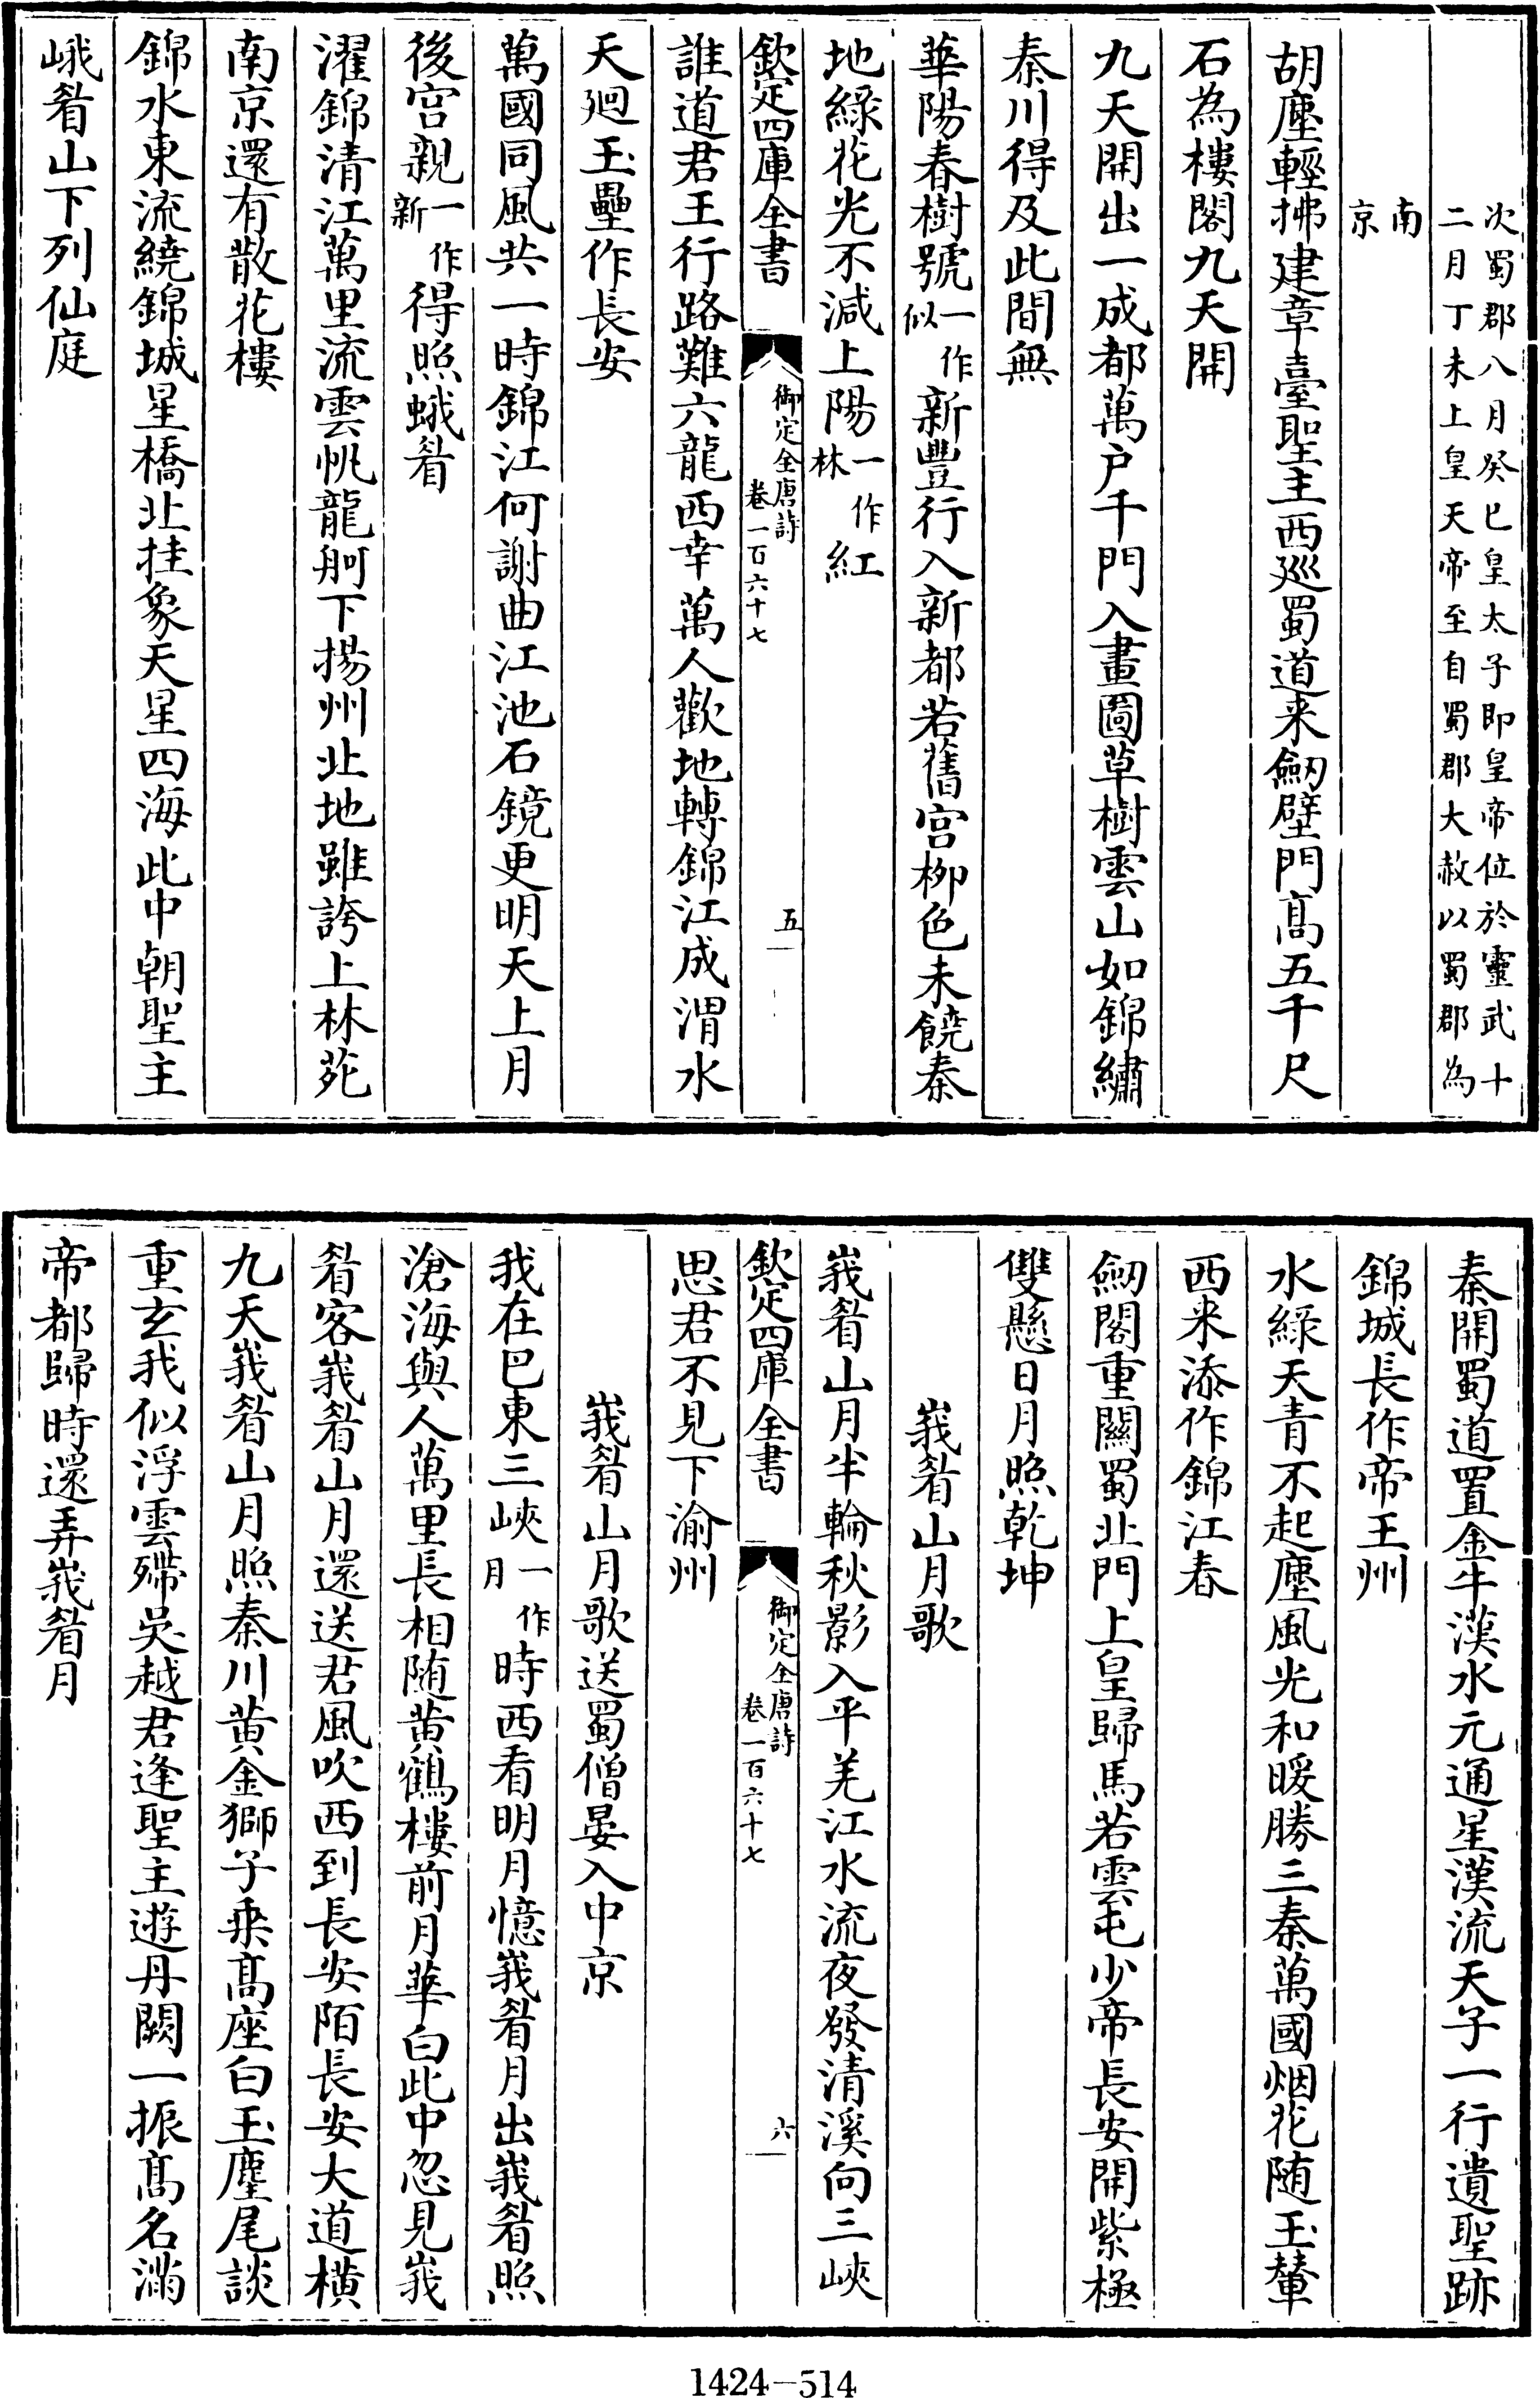 次蜀郡八月癸巳皇太子即皇帝位於靈武十
二月丁未上皇天帝至自蜀郡大赦以蜀郡為
南
京
胡塵輕拂建章臺聖主西廵蜀道来劒壁門髙五千尺
石為樓閣九天開
九天開出一成都萬户千門入畫圖草樹雲山如錦繡
秦川得及此間無
華陽春樹號一作似新豐行入新都若舊宫栁色未饒秦
地緑花光不減上陽一作林紅
欽定四庫全書
御定全唐詩
卷一百六十七
五
誰道君王行路難六龍西幸萬人歡地轉錦江成渭水
天廻玉壘作長安
萬國同風共一時錦江何謝曲江池石鏡更明天上月
後宫親一作新得照蛾眉
濯錦清江萬里流雲帆龍舸下揚州北地雖誇上林苑
南京還有散花樓
錦水東流繞錦城星橋北挂象天星四海此中朝聖主
峨眉山下列仙庭
秦開蜀道置金牛漢水元通星漢流天子一行遺聖跡
錦城長作帝王州
水緑天青不起塵風光和暖勝三秦萬國烟花随玉輦
西来添作錦江春
劒閣重關蜀北門上皇歸馬若雲屯少帝長安開紫極
雙懸日月照乾坤
峩眉山月歌
峩眉山月半輪秋影入平羌江水流夜發清溪向三峽
欽定四庫全書
御定全唐詩
卷一百六十七
六
思君不見下渝州
峩眉山月歌送蜀僧晏入中京
我在巴東三峽一作月時西看明月憶峩眉月出峩眉照
滄海與人萬里長相随黄鶴樓前月華白此中忽見峩
眉客峩眉山月還送君風吹西到長安陌長安大道橫
九天峩眉山月照秦川黄金獅子乗髙座白玉麈尾談
重玄我似浮雲殢吳越君逢聖主遊丹闕一振髙名滿
帝都歸時還弄峩眉月
1424-514